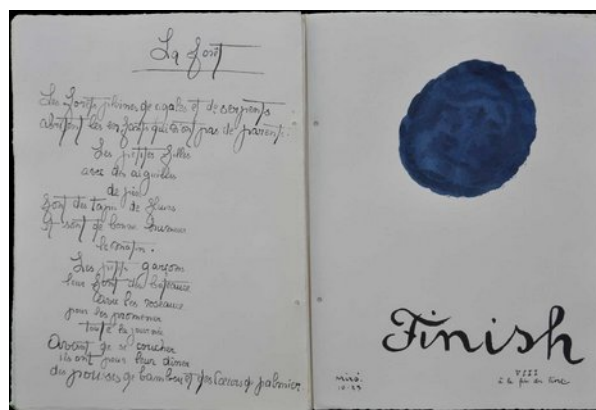 La forêt
Les forêts pleines de et de serpents
abritent les enfants qui n'ont pas de parents.
Les petites filles
avec des aiguilles
de pin
font des tapis de fleurs
et sont de bonne humeur
le matin.
Les petits garçons
leur font des bateaux
avec les roseaux
pour les promener
toute la journée
Avant de se coucher
ils ont pour leur dîner
des pousses de bambou et des coeurs de palmier.
Finish
miró.
VIII